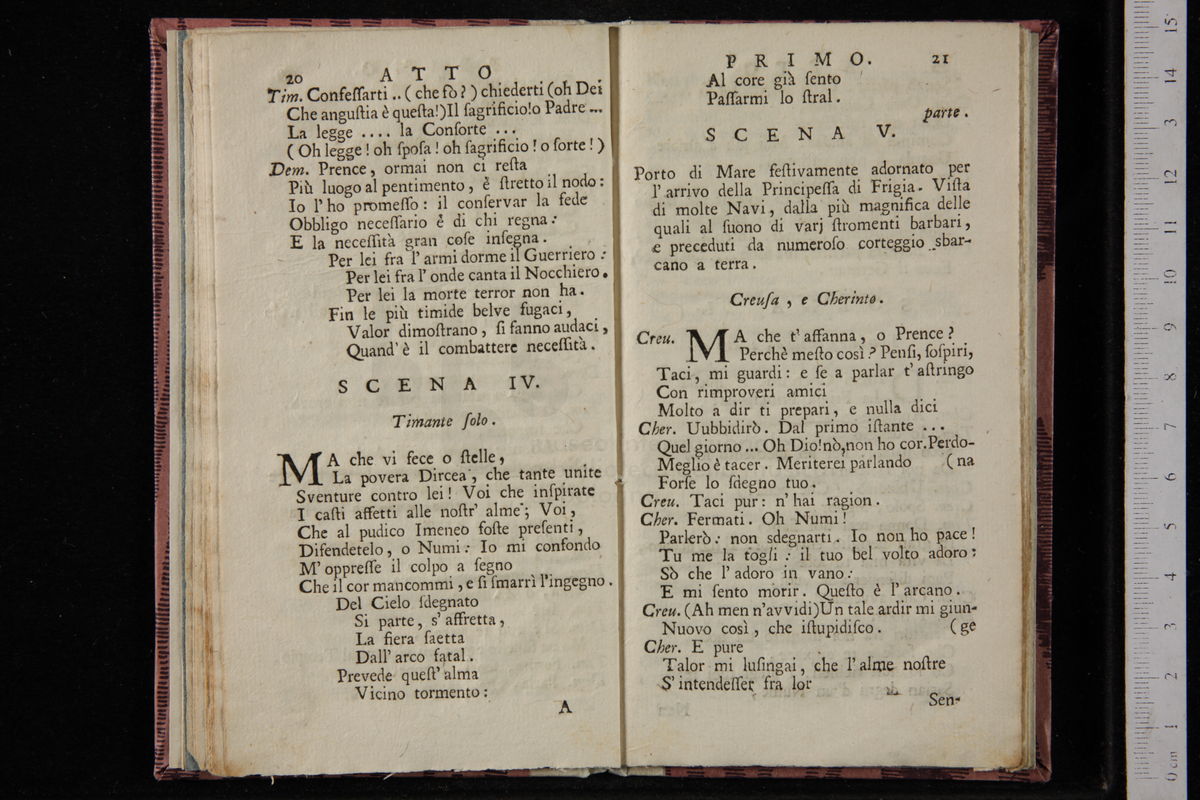 20 ATTO
Tim. Confeſſarti .. ( che fò ? ) chiederti (oh Dei
Che anguſtia è queſta!)Il ſagrificio!o Padre ...
La legge .... la Conſorte ...
( Oh legge ! oh ſpoſa ! oh ſagrificio ! o ſorte ! )
Dem. Prence , ormai non ci reſta
Più luogo al pentimento , è ſtretto il nodo :
Io l' ho promeſſo : il conſervar la fede
Obbligo neceſſario è di chi regna :
E la neceſſità gran coſe inſegna .
Per lei fra l' armi dorme il Guerriero :
Per lei fra l' onde canta il Nocchiero .
Per lei la morte terror non ha .
Fin le più timide belve fugaci ,
Valor dimoſtrano , ſi fanno audaci ,
Quand' è il combattere neceſſità .
SCENA IV.
Timante ſolo .
MA che vi fece o ſtelle ,
La povera Dircea , che tante unite
Sventure contro lei ! Voi che inſpirate
I caſti affetti alle noſtr' alme ; Voi ,
Che al pudico Imeneo foſte preſenti ,
Difendetelo , o Numi : Io mi confondo
M' oppreſſe il colpo a ſegno
Che il cor mancommi , e ſi ſmarrì l'ingegno .
Del Cielo ſdegnato
Si parte , s' affretta ,
La fiera ſaetta
Dall' arco fatal .
Prevede queſt' alma
Vicino tormento :
A
PRIMO. 21
Al core già ſento
Paſſarmi lo ſtral .
parte .
SCENA V.
Porto di Mare feſtivamente adornato per
l' arrivo della Principeſſa di Frigia . Viſta
di molte Navi , dalla più magnifica delle
quali al ſuono di varj ſtromenti barbari ,
e preceduti da numeroſo corteggio sbar-
cano a terra .
Creuſa , e Cherinto .
Creu. MA che t' affanna , o Prence ?
Perchè meſto così ? Penſi, ſoſpiri,
Taci , mi guardi : e ſe a parlar t' aſtringo
Con rimproveri amici
Molto a dir ti prepari , e nulla dici
Cher. Uubbidirò . Dal primo iſtante ...
Quel giorno ... Oh Dio!nò,non ho cor.Perdo-
Meglio è tacer . Meriterei parlando (na
Forſe lo ſdegno tuo .
Creu. Taci pur : n' hai ragion .
Cher. Fermati . Oh Numi !
Parlerò : non sdegnarti . Io non ho pace !
Tu me la togli : il tuo bel volto adoro :
Sò che l' adoro in vano :
E mi ſento morir . Queſto è l' arcano .
Creu. (Ah men n'avvidi)Un tale ardir mi giun-
Nuovo così , che iſtupidiſco . (ge
Cher. E pure
Talor mi luſingai , che l' alme noſtre
S' intendeſſer fra lor
Sen-
0 cm 1 2 3 4 5 6 7 8 9 10 11 12 13 14 15